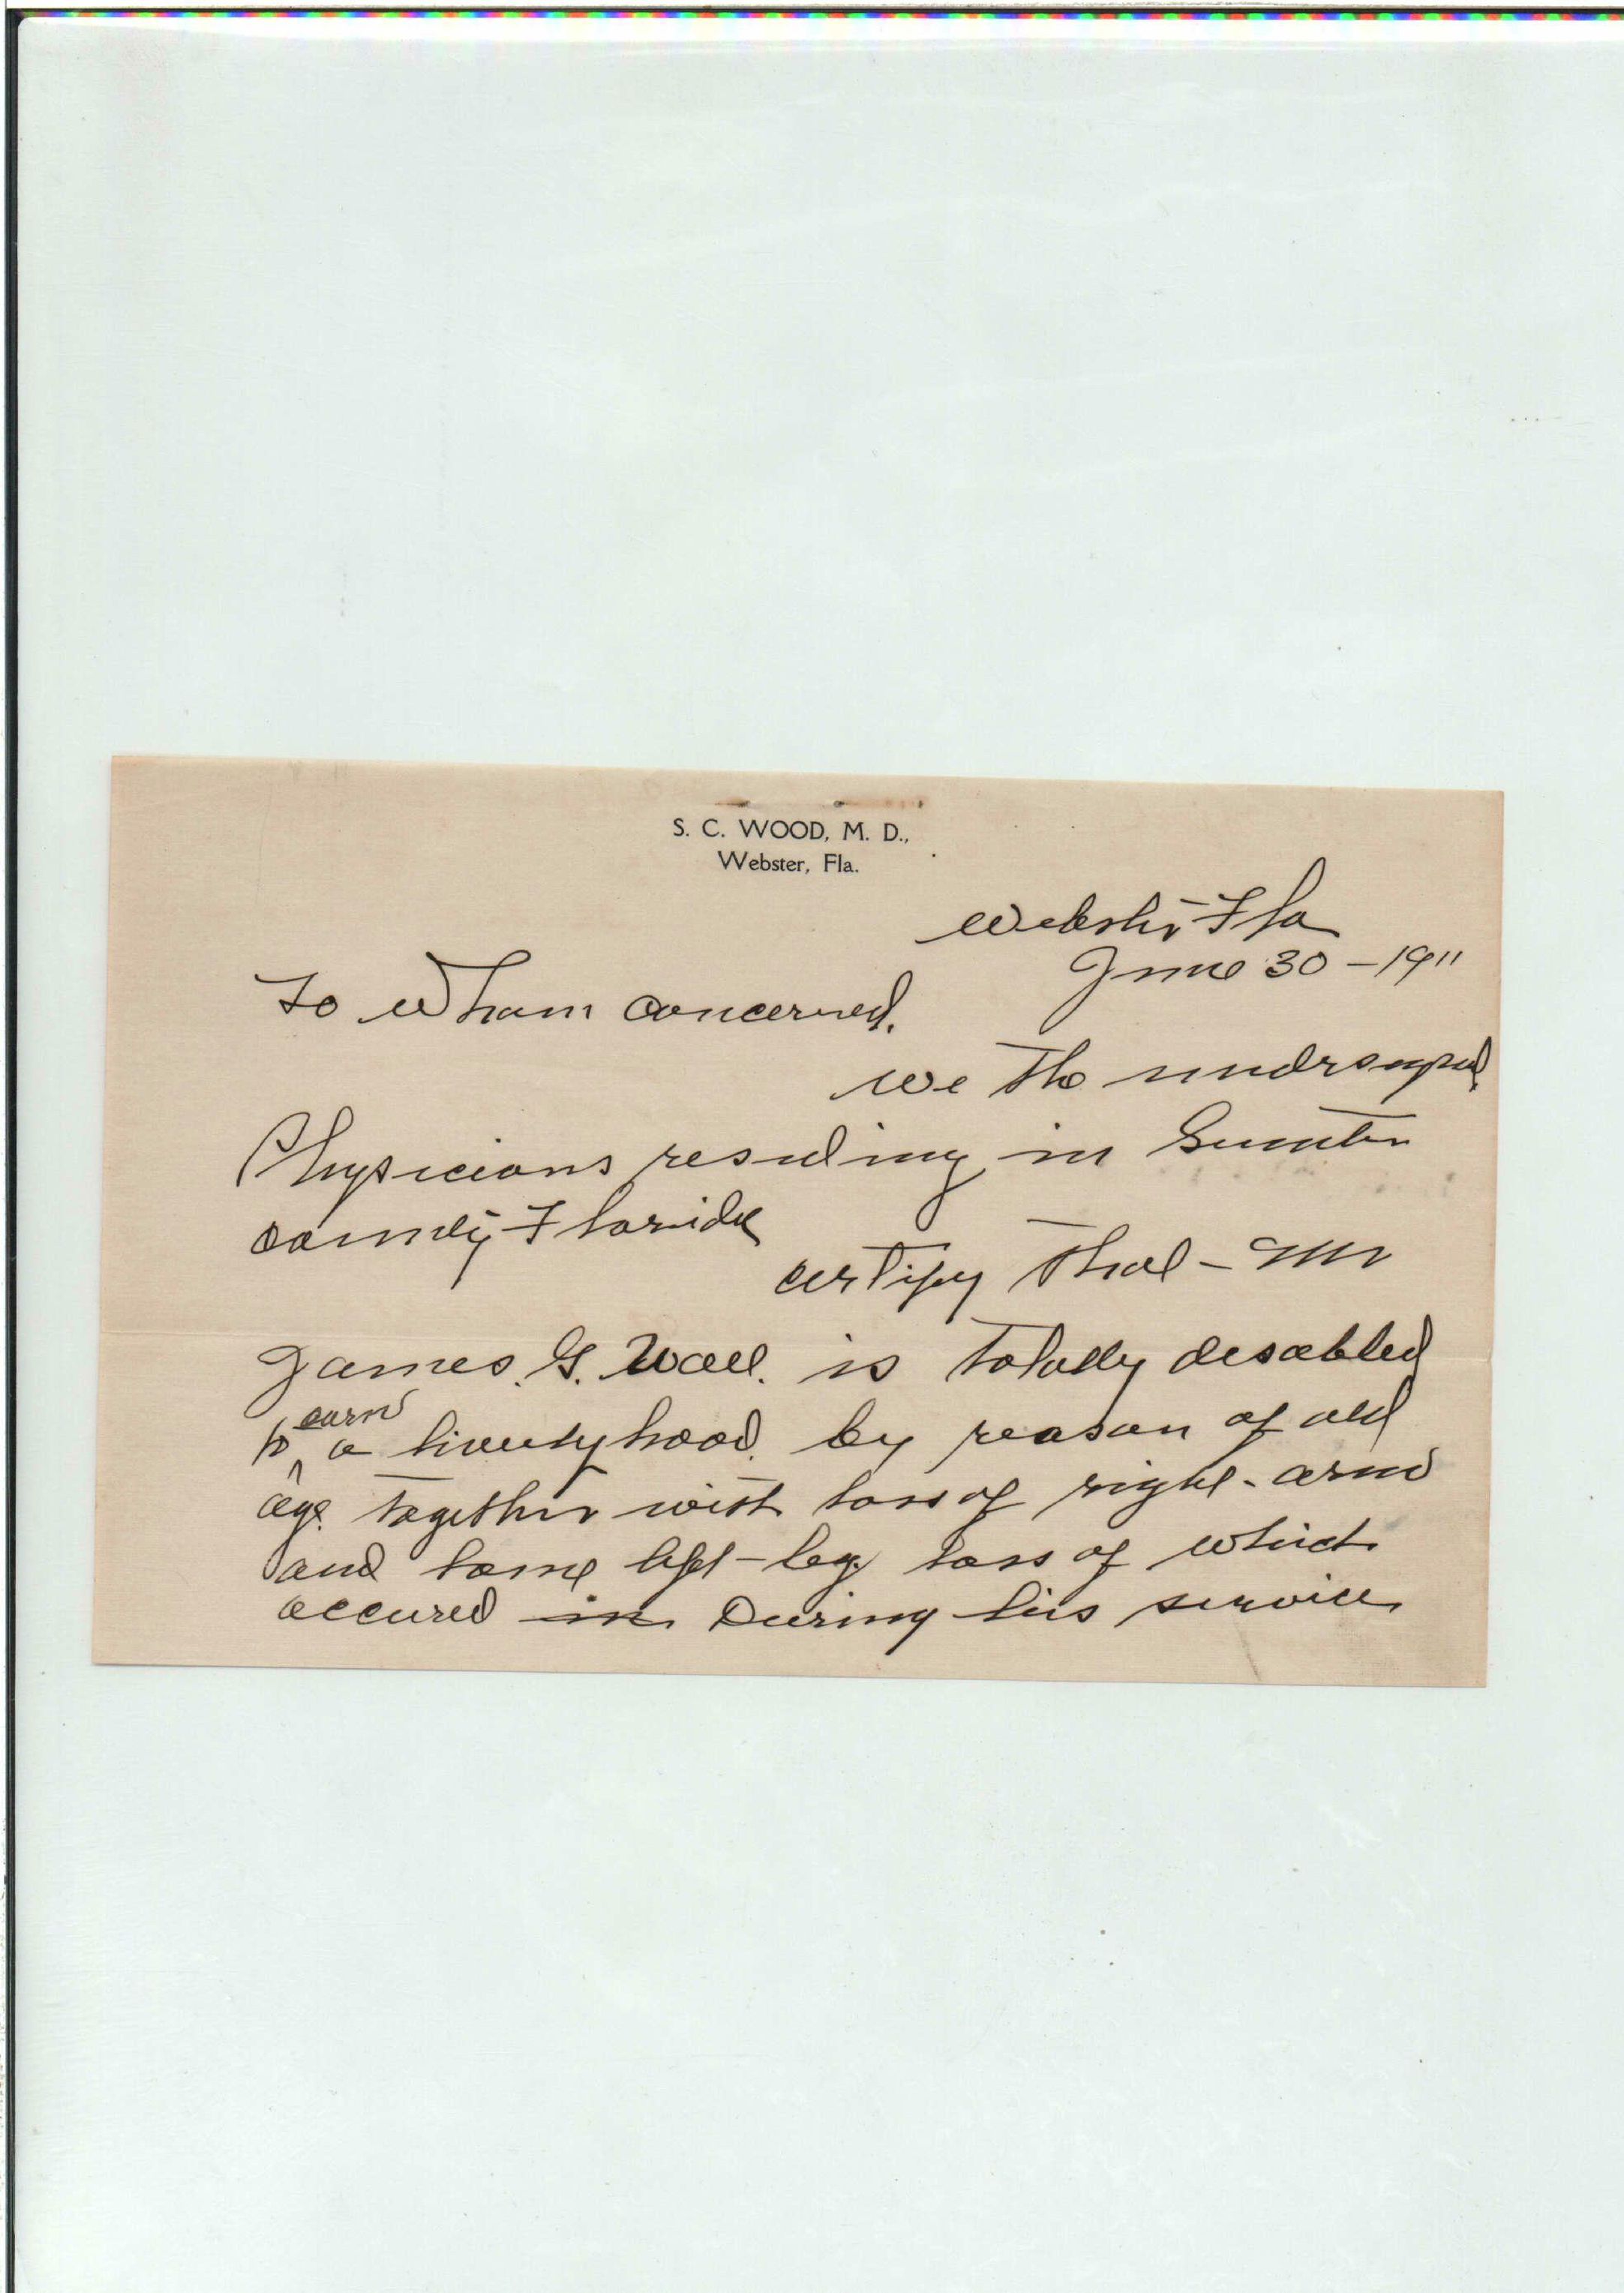 S. C. WOOD, M. D.,
Webster, Fla.
Webster Fla
June 30 - 1911
To Whom Concerned.
We the undrsigned
Physicians residing in Sumter
County Florida
certify that - Mr
James. G. Wall. is totally disabled
earn
to ^ a livelyhood. by reason of old
age. together with loss of right - arm
and lame left - leg. loss of which
occured in During his service